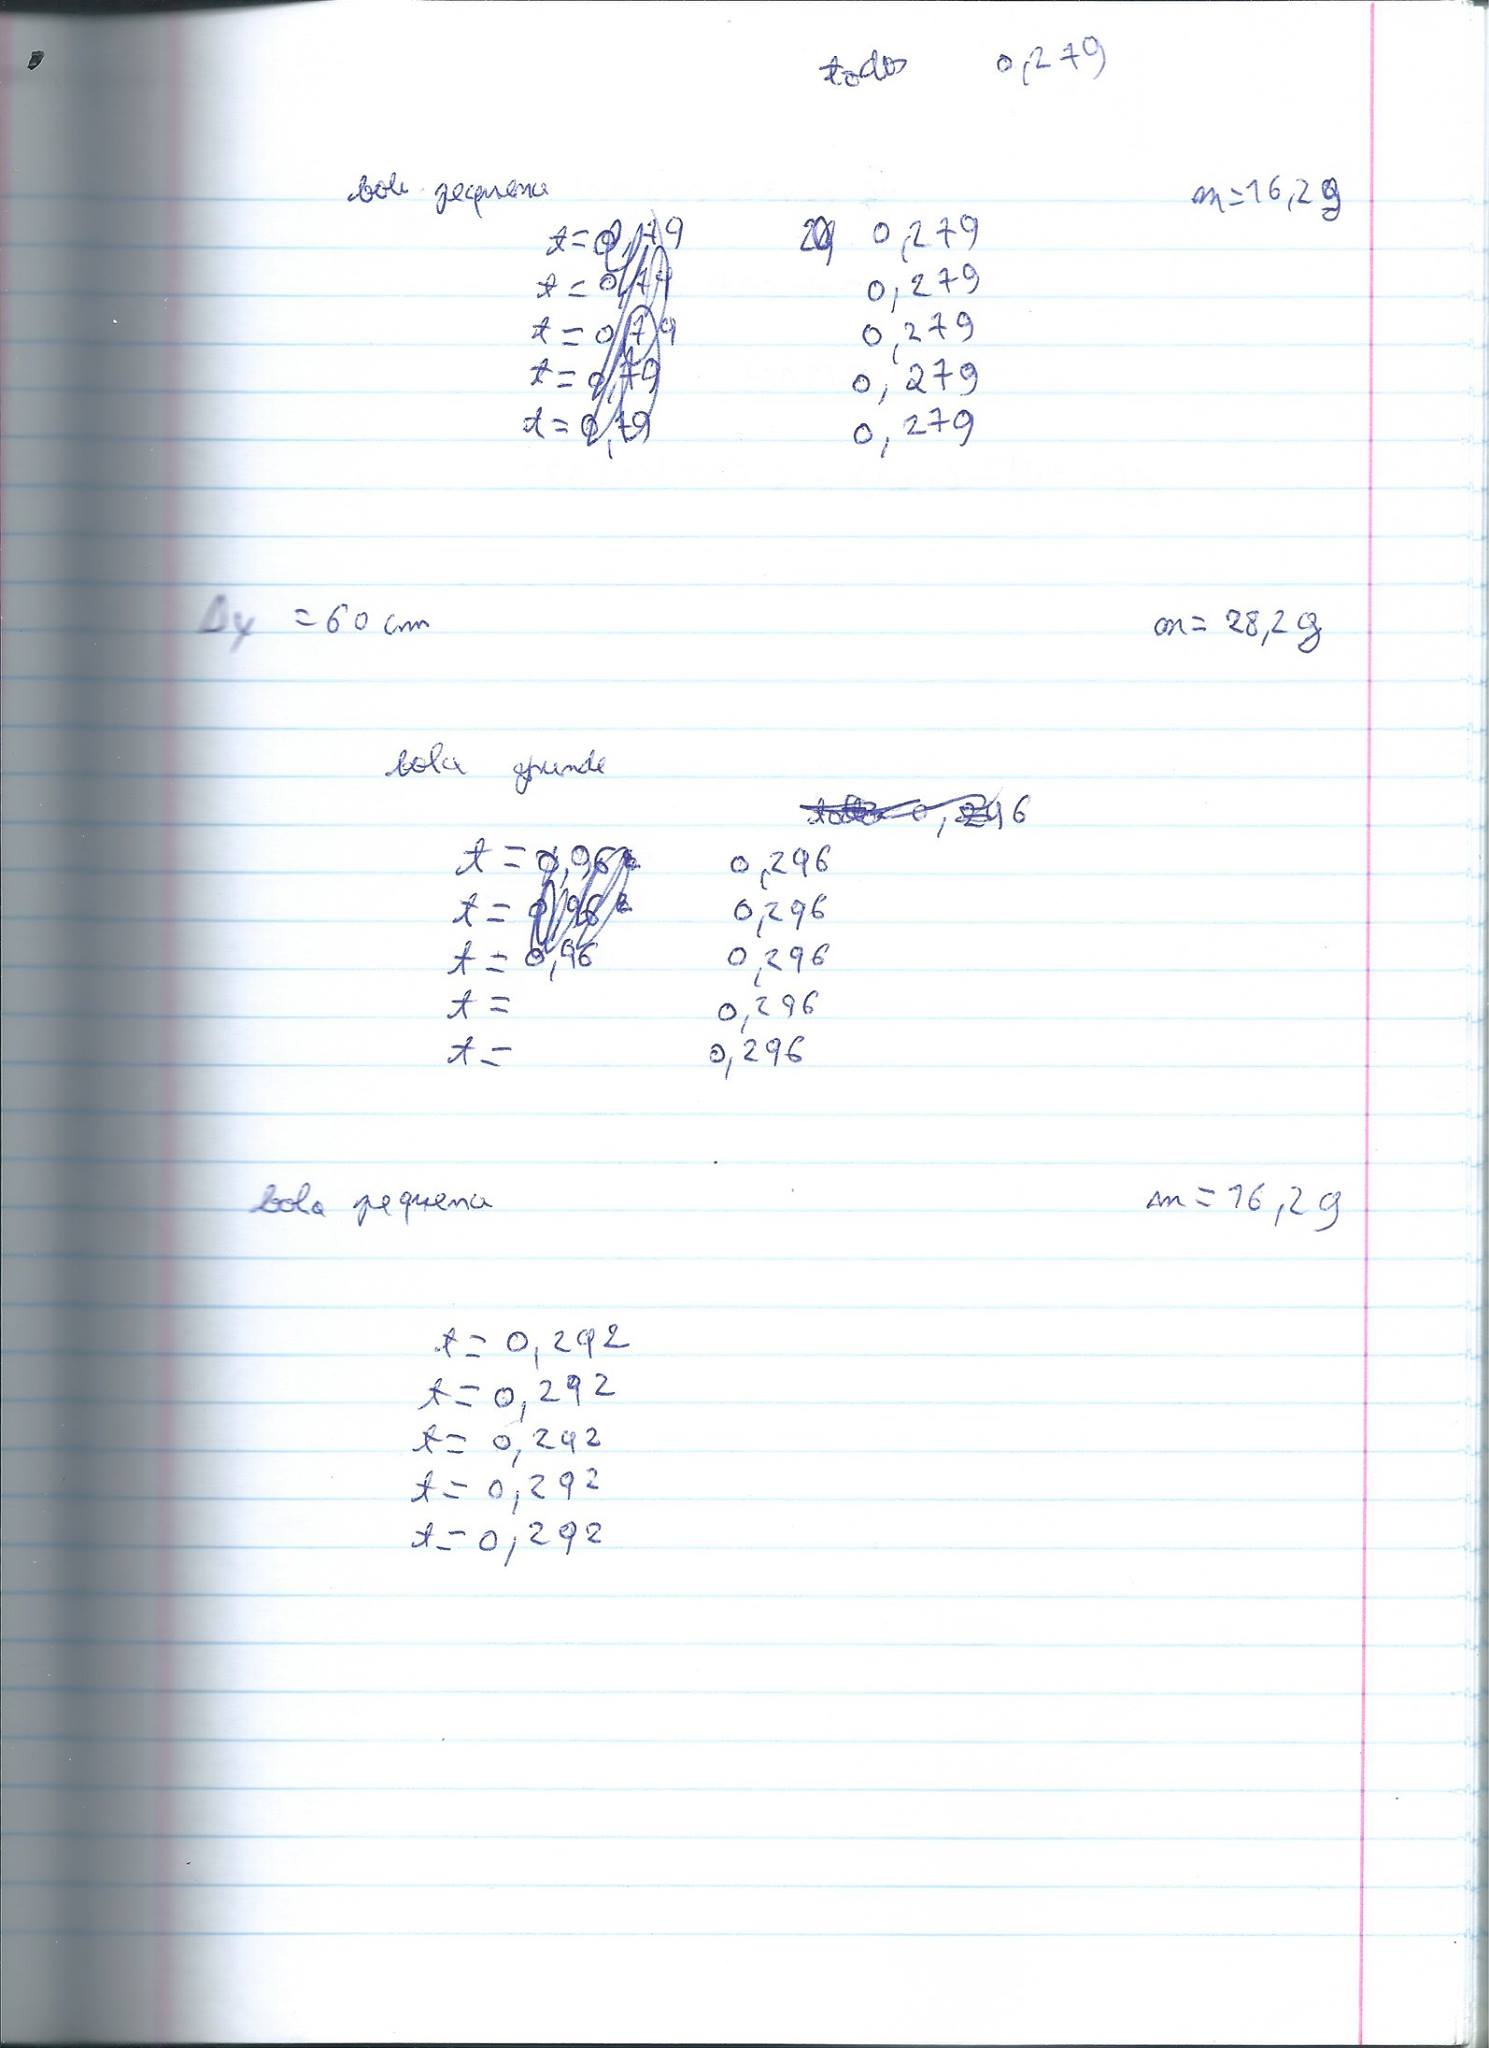 todos 0,279
bola pequena m=16,2g
t=0,79 0,279
t=0,79 0,279
t=0,79 0,279
t=0,79 0,279
t=0,79 0,279
Δy =60cm m=28,2g
bola grande
todos 0,296
t=0,96 0,296
t=0,96 0,296
t=0,96 0,296
t= 0,296
t= 0,296
bola pequena m=16,2g
t=0,292
t=0,292
t=0,292
t=0,292
t=0,292